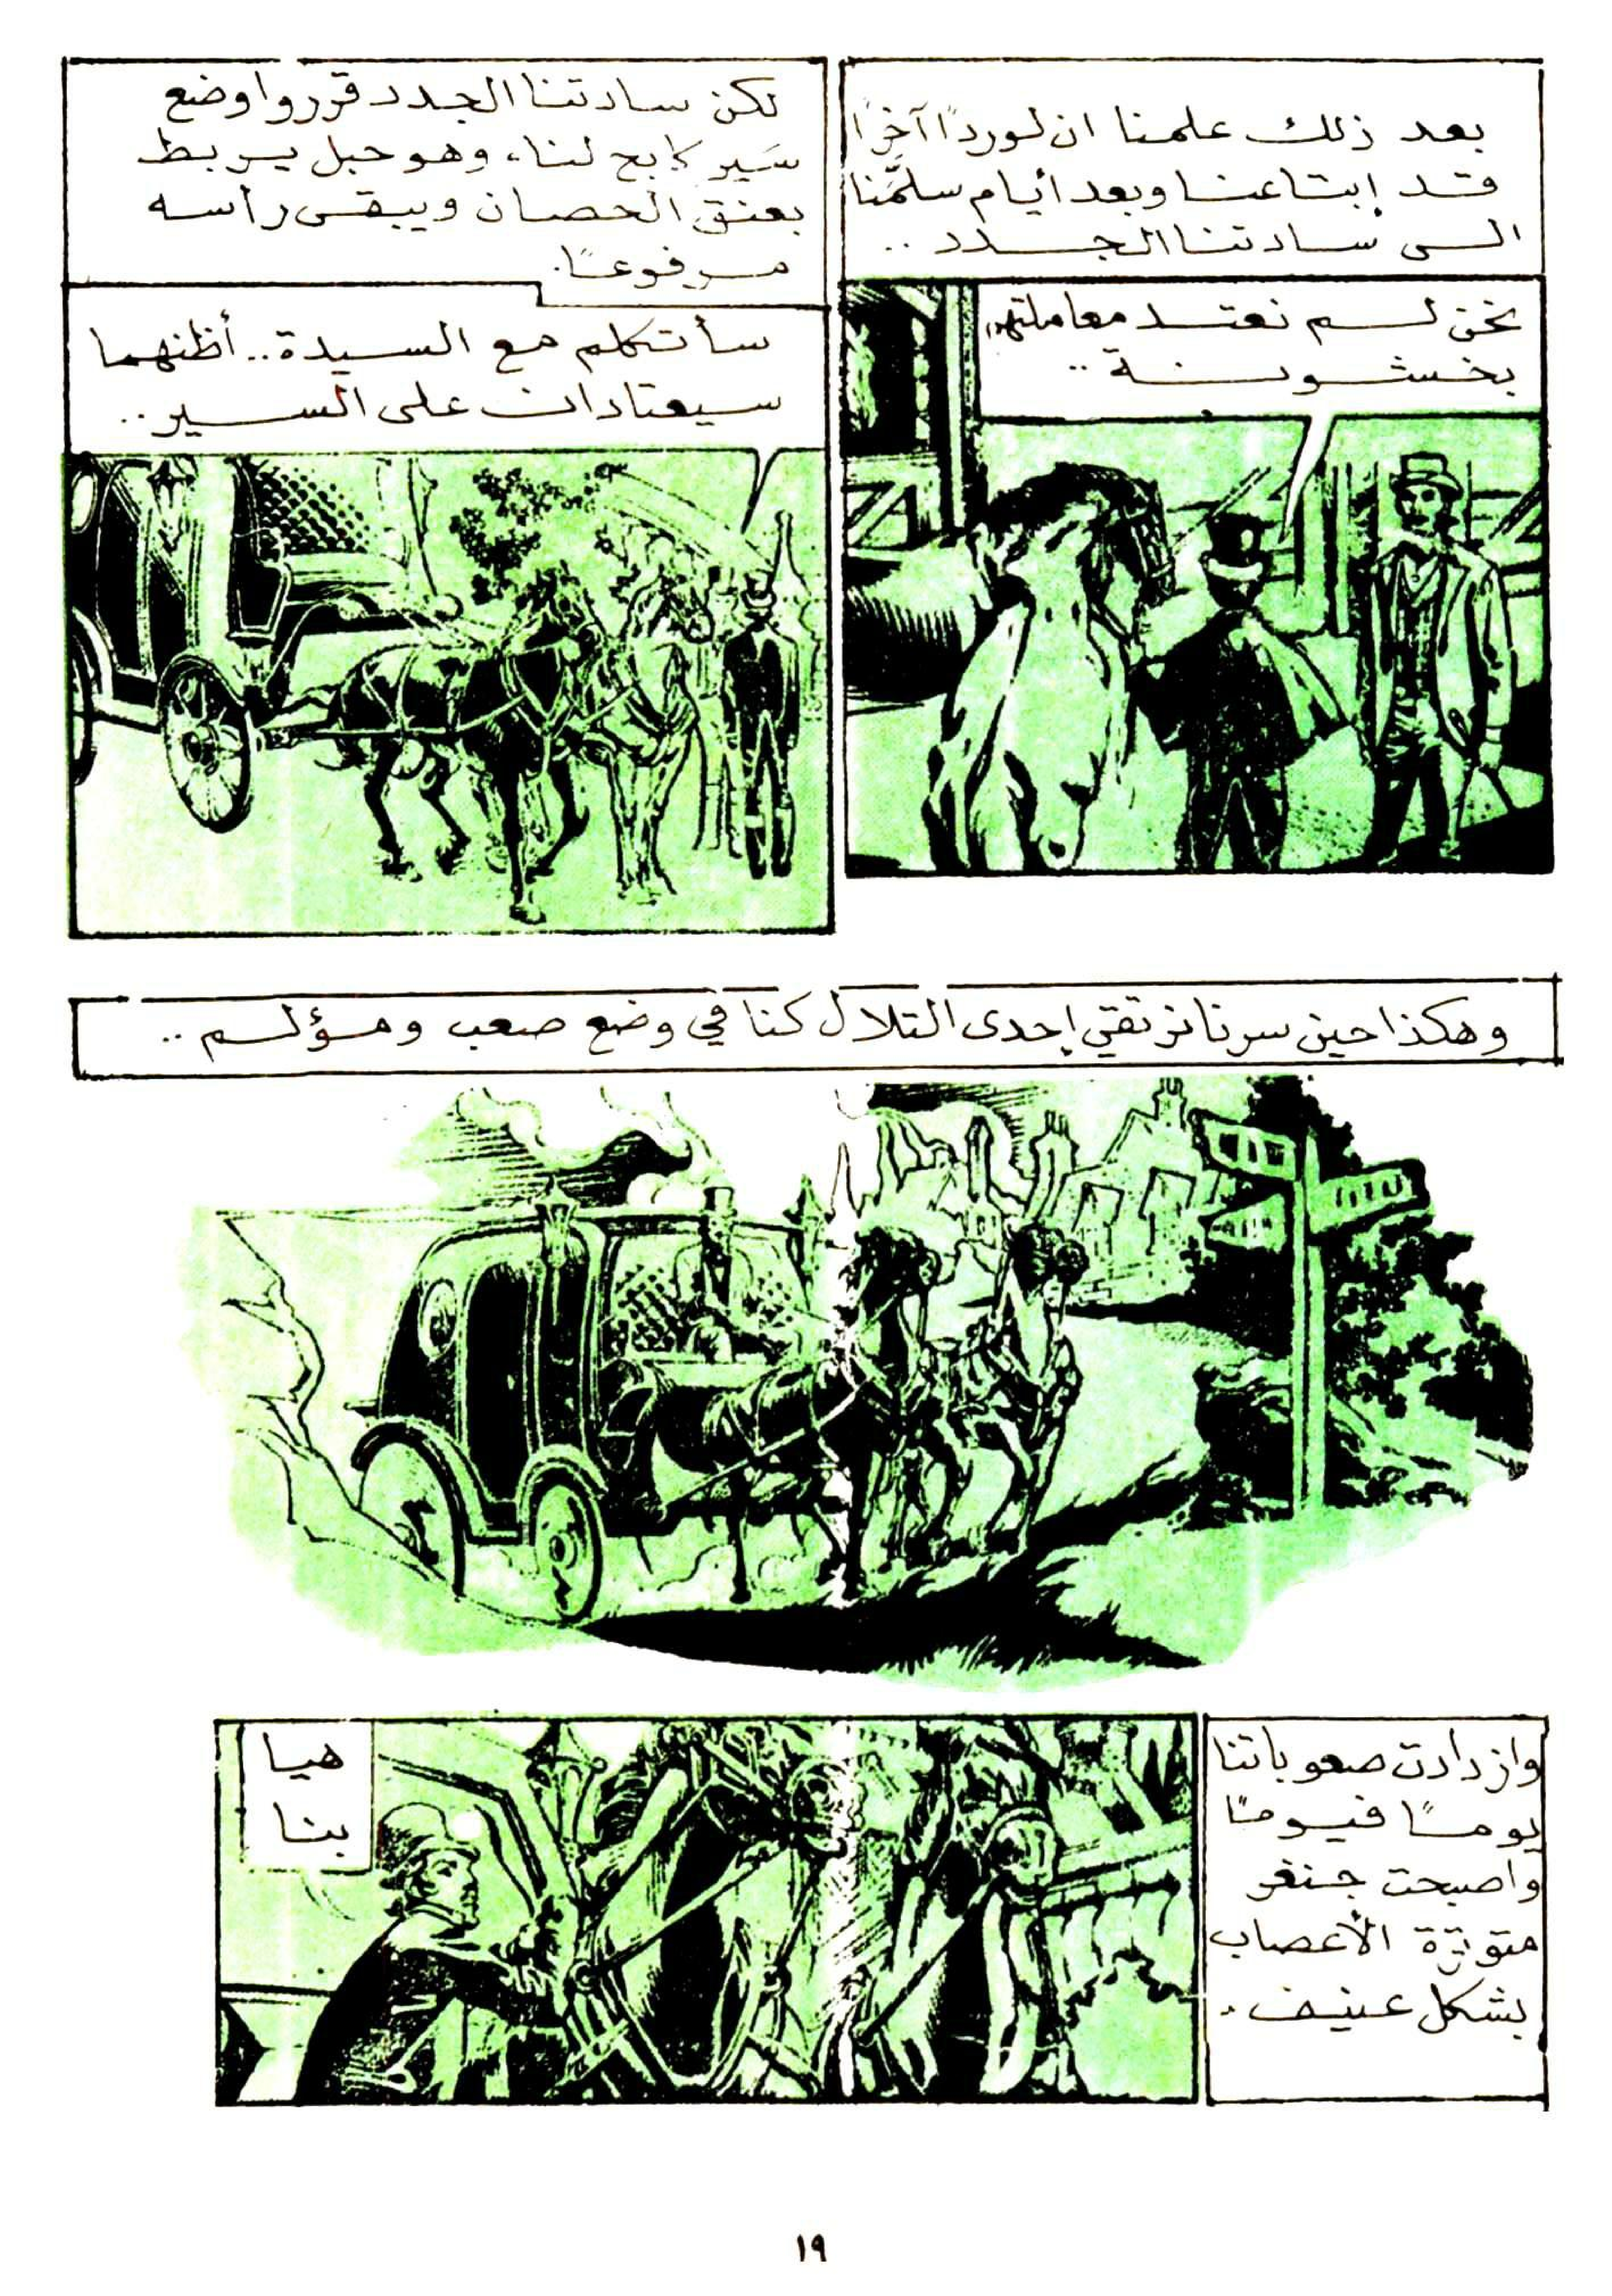 بعد ذلك علمنا ان لورداً آخراً
قد إبتاعنا وبعد أيام سلمَّنا
الى سادتنا الجدد ..
نحن لم نعتد معاملتهم
بخشونة ..
لكن سادتنا الجدد قرروا وضع
سَير كابح لنا، وهو حبل يربط
بعنق الحصان ويبقى رأسه
مرفوعاً.
سأتكلم مع السيدة.. أظنهما
سيعتادان على السير..
وهكذا حين سرنا نرتقي إحدى التلال كنا في وضع صعب ومؤلم ..
وازدادت صعوباتنا
يوماً فيوماً
واصبحت جنغر
متوترة الأعصاب
بشكل عنيف.
هيا
بنا
١٩